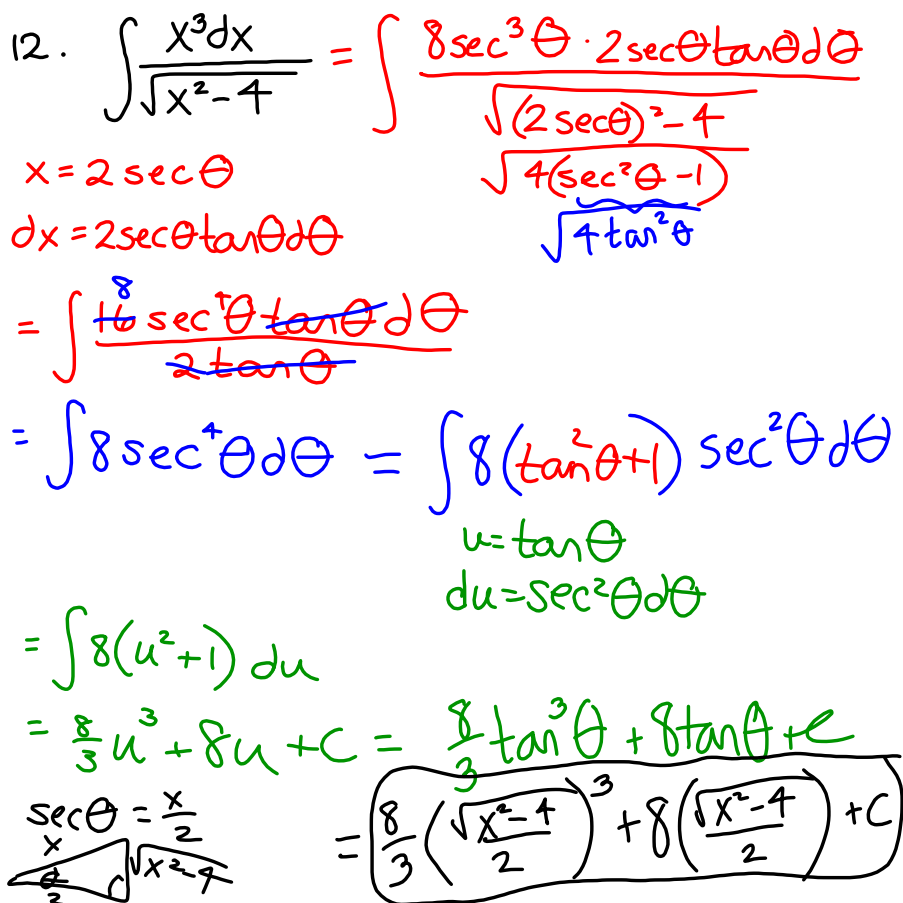 12. ∫ x³dx / √(x²-4) = ∫ 8sec³θ · 2secθtanθdθ / √((2secθ)²-4)
√(4(sec²θ-1))
x = 2secθ
√(4tan²θ)
dx = 2secθtanθdθ
8
= ∫ 16 sec⁴θ tanθ dθ / 2tanθ
= ∫ 8sec⁴θdθ = ∫ 8(tan²θ+1) sec²θdθ
u = tanθ
du = sec²θdθ
= ∫ 8(u²+1) du
= 8/3 u³ + 8u + C = 8/3 tan³θ + 8tanθ + C
secθ = x/2
= 8/3 (√(x²-4) / 2)³ + 8(√(x²-4) / 2) + C
x
√(x²-4)
θ
2